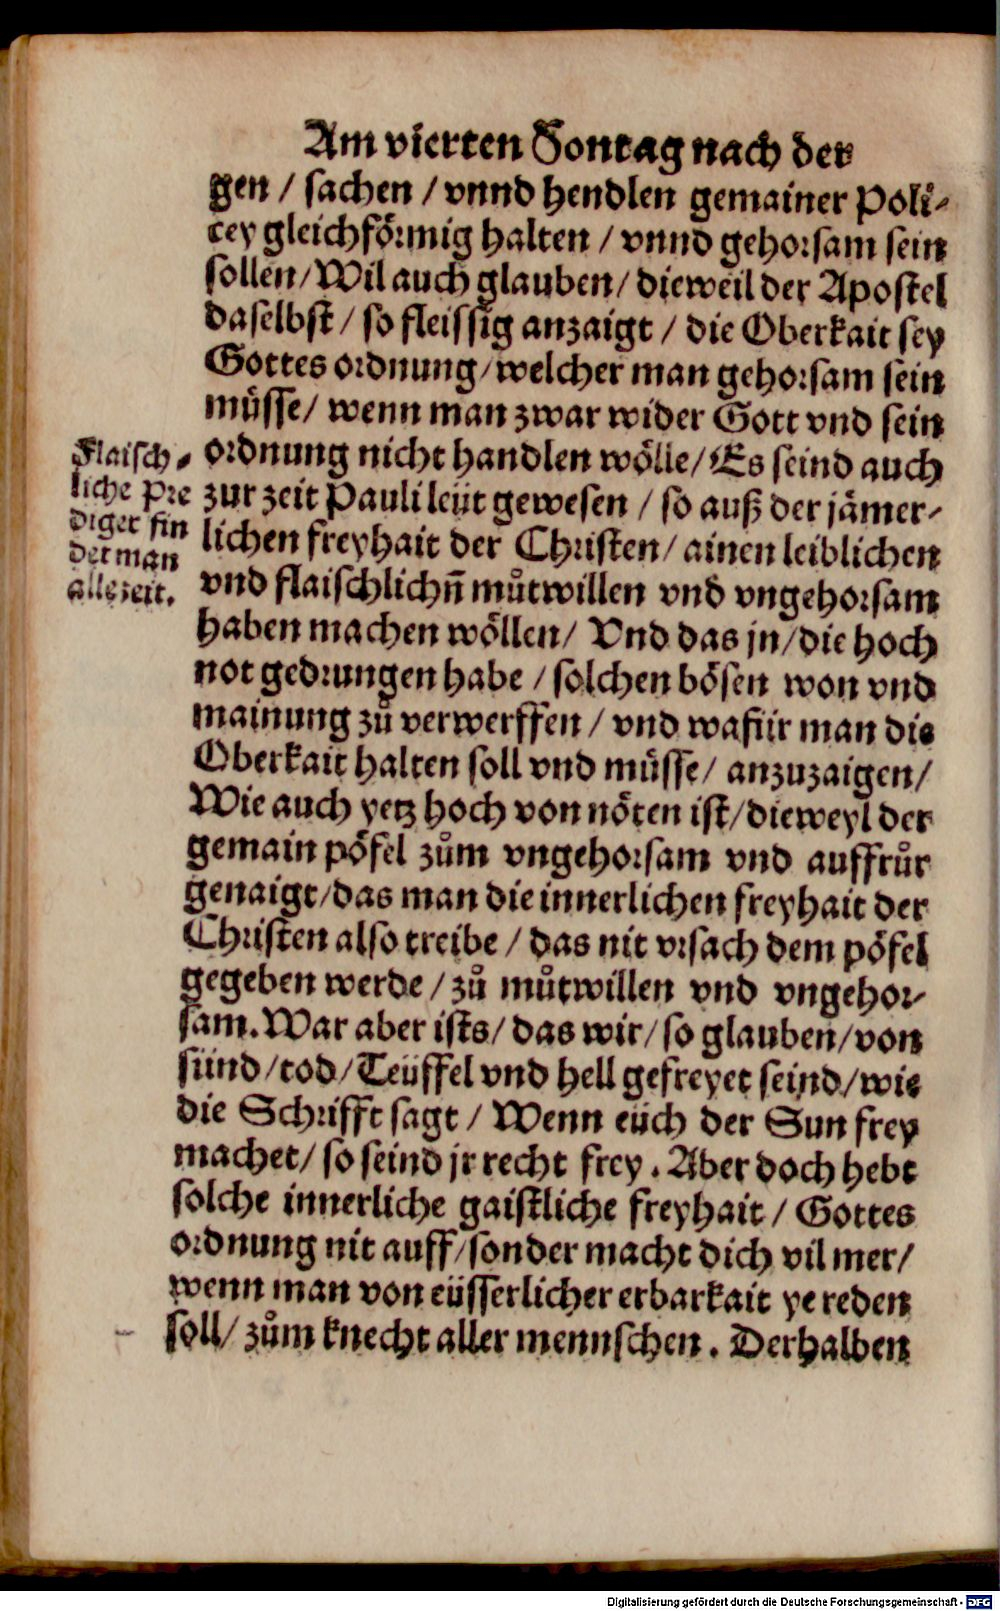 Am vierten Sontag nach der
gen / sachen / vnnd hendlen gemainer Poli-
cey gleichförmig halten / vnnd gehorsam sein
sollen / Wil auch glauben / dieweil der Apostel
daselbst / so fleissig anzaigt / die Oberkait sey
Gottes ordnung / welcher man gehorsam sein
müsse / wenn man zwar wider Gott vnd sein
ordnung nicht handlen wölle / Es seind auch
zur zeit Pauli leüt gewesen / so auß der jämer-
lichen freyhait der Christen / ainen leiblichen
vnd flaischlichn̄ můtwillen vnd vngehorsam
haben machen wöllen / Vnd das jn / die hoch
not gedrungen habe / solchen bösen won vnd
mainung zů verwerffen / vnd wafür man die
Oberkait halten soll vnd müsse / anzuzaigen /
Wie auch yetz hoch von nöten ist / dieweyl der
gemain pöfel zům vngehorsam vnd auffrůr
genaigt / das man die innerlichen freyhait der
Christen also treibe / das nit vrsach dem pöfel
gegeben werde / zů můtwillen vnd vngehor-
sam. War aber ists / das wir / so glauben / von
sünd / tod / Teüffel vnd hell gefreyet seind / wie
die Schrifft sagt / Wenn eüch der Sun frey
machet / so seind jr recht frey. Aber doch hebt
solche innerliche gaistliche freyhait / Gottes
ordnung nit auff / sonder macht dich vil mer /
wenn man von eüsserlicher erbarkait ye reden
soll / zům knecht aller mennschen. Derhalben
Flaisch-
liche Pre
diger fin
det man
allezeit.
Digitalisierung gefördert durch die Deutsche Forschungsgemeinschaft - DFG